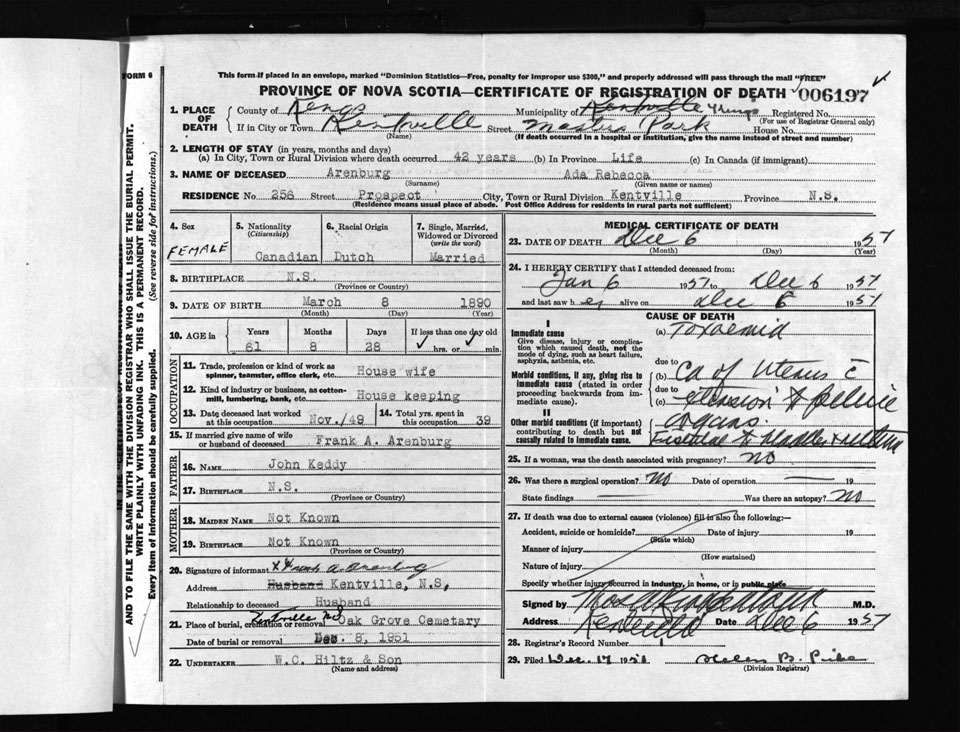 FORM 6
This form if placed in an envelope, marked "Dominion Statistics—Free, penalty for improper use $300," and properly addressed will pass through the mail "FREE"
PROVINCE OF NOVA SCOTIA—CERTIFICATE OF REGISTRATION OF DEATH 006197
1. PLACE OF DEATH County of Kings Municipality of Kentville Registered No.
(For use of Registrar General only)
If in City or Town Kentville Street Park House No.
(Name) (If death occurred in a hospital or institution, give the name instead of street and number)
2. LENGTH OF STAY (in years, months and days)
(a) In City, Town or Rural Division where death occurred 42 years (b) In Province Life (c) In Canada (if immigrant)
3. NAME OF DECEASED Arenburg Ada Rebecca
(Surname) (Given name or names)
RESIDENCE No 256 Street Prospect City, Town or Rural Division Kentville Province N.S.
(Residence means usual place of abode. Post Office Address for residents in rural parts not sufficient)
4. Sex 5. Nationality (Citizenship) 6. Racial Origin 7. Single, Married, Widowed or Divorced (write the word)
FEMALE Canadian Dutch Married
8. BIRTHPLACE N.S.
(Province or Country)
9. DATE OF BIRTH March 8 1890
(Month) (Day) (Year)
10. AGE in Years Months Days If less than one day old
61 8 28 hrs. or min.
OCCUPATION
11. Trade, profession or kind of work as spinner, teamster, office clerk, etc. House wife
12. Kind of industry or business, as cotton-mill, lumbering, bank, etc. House keeping
13. Date deceased last worked at this occupation Nov./49 14. Total yrs. spent in this occupation 39
15. If married give name of wife or husband of deceased Frank A. Arenburg
FATHER
16. NAME John Keddy
17. BIRTHPLACE N.S.
(Province or Country)
MOTHER
18. MAIDEN NAME Not Known
19. BIRTHPLACE Not Known
(Province or Country)
20. Signature of informant x Frank A Arenburg
Address Husband Kentville, N.S,
Relationship to deceased Husband
21. Place of burial, cremation or removal Kentville NS Oak Grove Cemetary
Date of burial or removal Dec. 8, 1951
22. UNDERTAKER W.C. Hiltz & Son
(Name and address)
MEDICAL CERTIFICATE OF DEATH
23. DATE OF DEATH Dec 6 1951
(Month) (Day) (Year)
24. I HEREBY CERTIFY that I attended deceased from:
Jan 6 1951 to Dec 6 1951
and last saw her alive on Dec 6 1951
CAUSE OF DEATH
I
Immediate cause (a) Toxaemia
Give disease, injury or complication which caused death, not the mode of dying, such as heart failure, asphyxia, asthenia, etc.
due to
Morbid conditions, if any, giving rise to immediate cause (stated in order proceeding backwards from immediate cause). (b) Ca of Uterus c
due to
(c) extension to pelvic
organs.
II
Other morbid conditions (if important) contributing to death but not causally related to immediate cause.
25. If a woman, was the death associated with pregnancy? NO
26. Was there a surgical operation? NO Date of operation 19
State findings Was there an autopsy? NO
27. If death was due to external causes (violence) fill in also the following:—
Accident, suicide or homicide? Date of injury 19
(State which)
Manner of injury
(How sustained)
Nature of injury
Specify whether injury occurred in industry, in home, or in public place
Signed by M.D.
Address Kentville Date Dec 6 1951
28. Registrar's Record Number
29. Filed Dec. 17 1951 Helen B. Pike
(Division Registrar)
AND TO FILE THE SAME WITH THE DIVISION REGISTRAR WHO SHALL ISSUE THE BURIAL PERMIT.
WRITE PLAINLY WITH UNFADING INK. THIS IS A PERMANENT RECORD.
Every item of information should be carefully supplied. (See reverse side for instructions.)